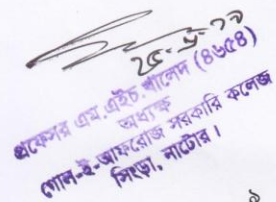 ২৫.৯.১৭
প্রফেসর এম.এইচ খালেদ (৪৬৫৪)
অধ্যক্ষ
গোল-ই-আফরোজ সরকারি কলেজ
সিংড়া, নাটোর।